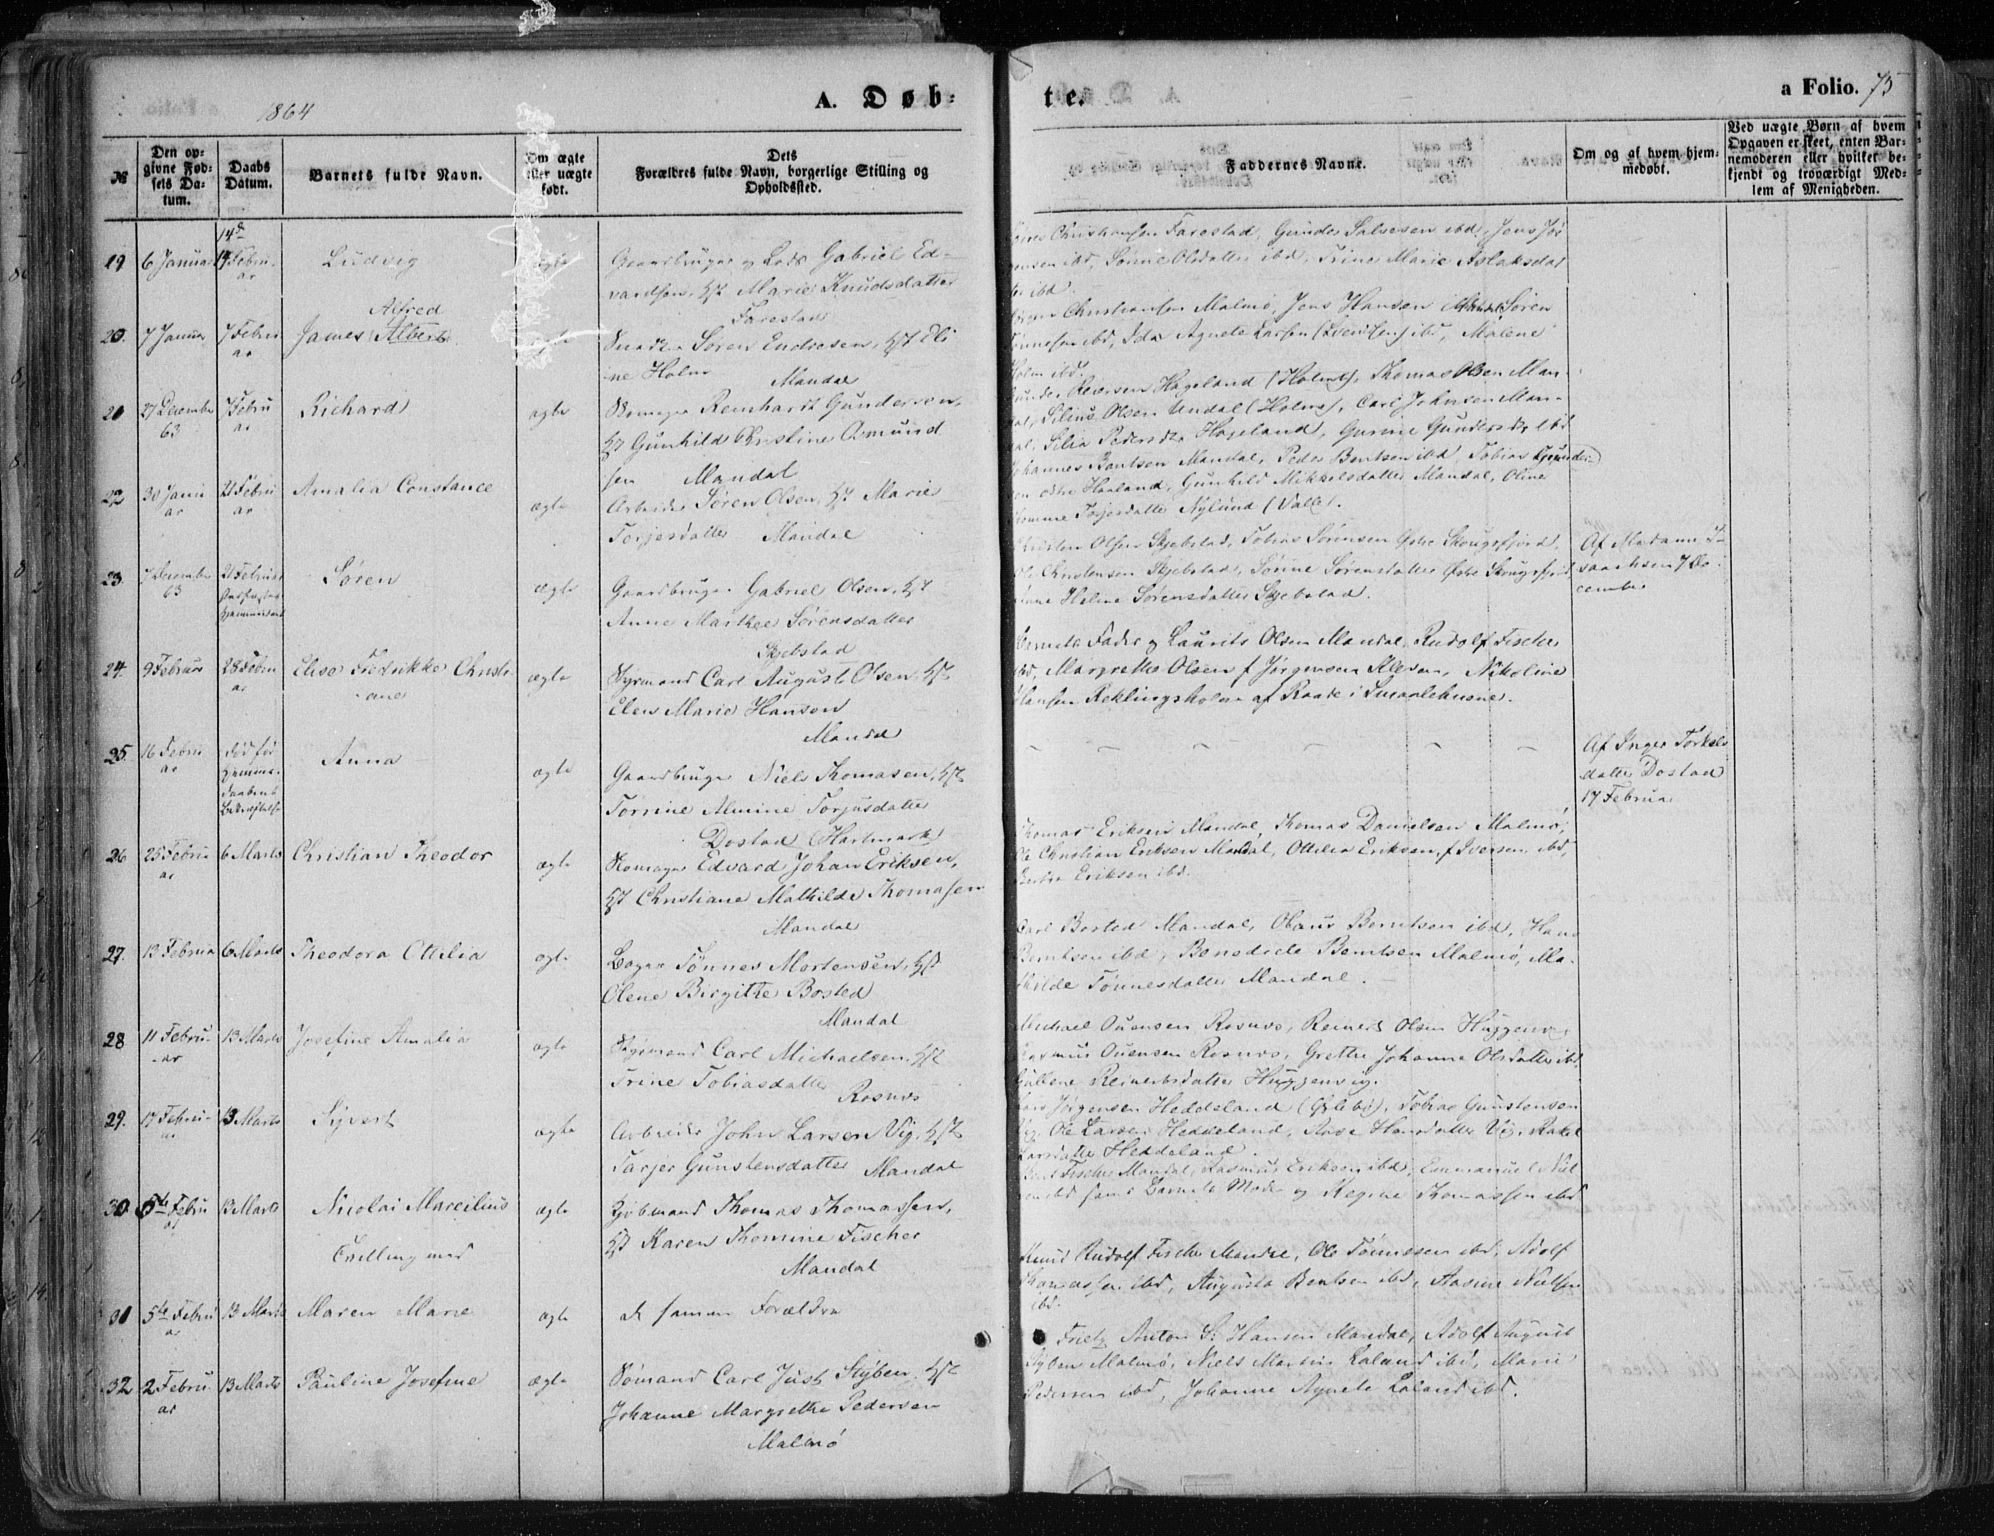 1864
A. Døb-
te.
a Folio. 75
№
Den op-
givne Fød-
sels Da-
tum.
Daabs
Datum.
Barnets fulde Navn.
Om ægte
eller uægte
født.
Dets
Forældres fulde Navn, borgerlige Stilling og
Opholdssted.
Faddernes Navne.
Om og af hvem hjem-
medøbt.
Ved uægte Børn af hvem
Opgaven er skeet, enten Bar-
nemoderen eller hvilket be-
kjendt og troværdigt Med-
lem af Menigheden.
19 6 Januar 14de Febru-
ar
Ludvig
ægte
Gaardbruger og Lods Gabriel Ed-
vardsen, Hst Marie Knudsdatter
Farestad
Christiansen Farestad, Gunder Salvesen ibd, Jens Jør
gensen ibd, Sørine Olsdatter ibd, Trine Marie Aslaksdat
ter ibd
20. 7 Januar 7 Febru
ar
James Alfred Albert
ægte
Søren Endresen, Hst Eli
ne Holm
Mandal
Christiansen Malmø, Jens Hansen Mandal, Søren
Tønnesen ibd, Ida Agnete Larsen (Svendsen) ibd, Malene
Holm ibd.
21 27 December
63
7 Febru
ar
Richard
ægte
Skomager Reinhardt Gundersen,
Hst Gunhild Christine Asmund
sen Mandal
Gunder Reiersen Hageland (Holme), Thomas Olsen Man-
dal, Silius Olsen Undal (Holme), Carl Johnsen Man-
dal, Silia Pedersdtr Hageland, Gurine Gundersdtr ibd
22 30 Janu
ar
21 Febru
ar
Amalia Constance
ægte
Arbeider Søren Olsen, Hst Marie
Torjesdatter Mandal
Johannes Bentsen Mandal, Peder Bentsen ibd, Tobias Gunder-
sen østre Haaland, Gunhild Mikkelsdatter Mandal, Oline
Tomine Torjesdatter Nylund (Valle).
23. 7 December
63
21 Februar
Søren
ægte
Gaardbruger Gabriel Olsen, Hst
Anne Marthee Sørensdatter
Skjebstad
Christen Olsen Skjebstad, Tobias Sørensen Østre Skougsfjord,
Ole Christensen Skjebstad, Sørine Sørensdatter Østre Skougsfjord
Anne Helene Sørensdatter Skjebstad.
Af Madame I-
saachsen 7 De-
cember
24. 9 Februar 28 Febru
ar
Elise Fredrikke Christi
ane
ægte
Styrmand Carl August Olsen, Hst
Elen Marie Hansen
Mandal
Barnets Fader og Laurits Olsen Mandal, Rudolf Fischer
ibd, Margrethe Olsen f Jørgensen Kleven, Nikoline
Hansen Reklingsholm af Raade i Smaalehnene.
25. 16 Febru
ar
død før
Hjemme-
daabens
Bekræftelse
Anna
ægte
Gaardbruger Niels Thomasen, Hst
Torine Almine Torjusdatter
Dostad (Hartmark)
Af Inger Torkels
datter Dostad
17 Februar
26 25 Febru
ar
6 Marts
Christian Theodor
ægte
Skomager Edvard Johan Eriksen,
Hst Christiane Mathilde Thomasen
Mandal
Thomas Eriksen Mandal, Thomas Danielsen Malmø,
Ole Christian Eriksen Mandal, Ottilia Eriksen f Iversen ibd,
Eriksen ibd.
27. 13 Februar 6 Marts
Theodora Ottilia
ægte
Bager Tønnes Mortensen, Hst
Olene Birgitte Bosted
Mandal
Carl Bosted Mandal, Olaus Berntsen ibd, Hans
Berntsen ibd, Benedicte Berntsen Malmø, Ma-
thilde Tønnesdatter Mandal.
28 11 Febru-
ar
13 Marts
Josefine Amalia
ægte
Styrmand Carl Michaelsen, Hst
Trine Tobiasdatter
Rosnæs
Michael Ouensen Rosnæs, Reinert Olsen Huggenvig
Rasmus Ouensen Rosnæs, Grethe Johanne Olsdatter ibd
Gulbene Reinertsdatter Huggenvig.
29. 17 Febru-
ar
13 Marts
Syvert
ægte
Arbeider John Larsen Vig, Hst
Tarjer Gunstensdatter Mandal
Lars Jørgensen Heddeland (Øslebø), Tobias Gunstensen
Vig, Ole Larsen Heddeland, Aase Hansdatter Vig, Rakel
Larsdatter Heddeland.
30. 5te Febru
ar
13 Marts
Nicolai Marcilius
Tvilling med
ægte
Kjøbmand Thomas Thomassen,
Hst Karen Thomine Fischer
Mandal
Fischer Mandal, Rasmus Eriksen ibd, Emmanuel Niel
sen ibd samt Barnets Moder og Regine Thomassen ibd
31 5te Febru
ar
13 Marts
Maren Marie
ægte
de samme Forældre
Knud Rudolf Fischer Mandal, Ole Tønnesen ibd, Adolf
Thomassen ibd, Augusta Bentsen ibd, Aasine Nielsen
ibd.
32 2 Febru
ar
13 Marts
Pauline Josefine
ægte
Sømand Carl Just Styben, Hst
Johanne Margrethe Pedersen
Malmø
Frietz Anton S. Hansen Mandal, Adolf August
Styben Malmø, Niels Martin Laland ibd, Marie
Pedersen ibd, Johanne Agnete Laland ibd.